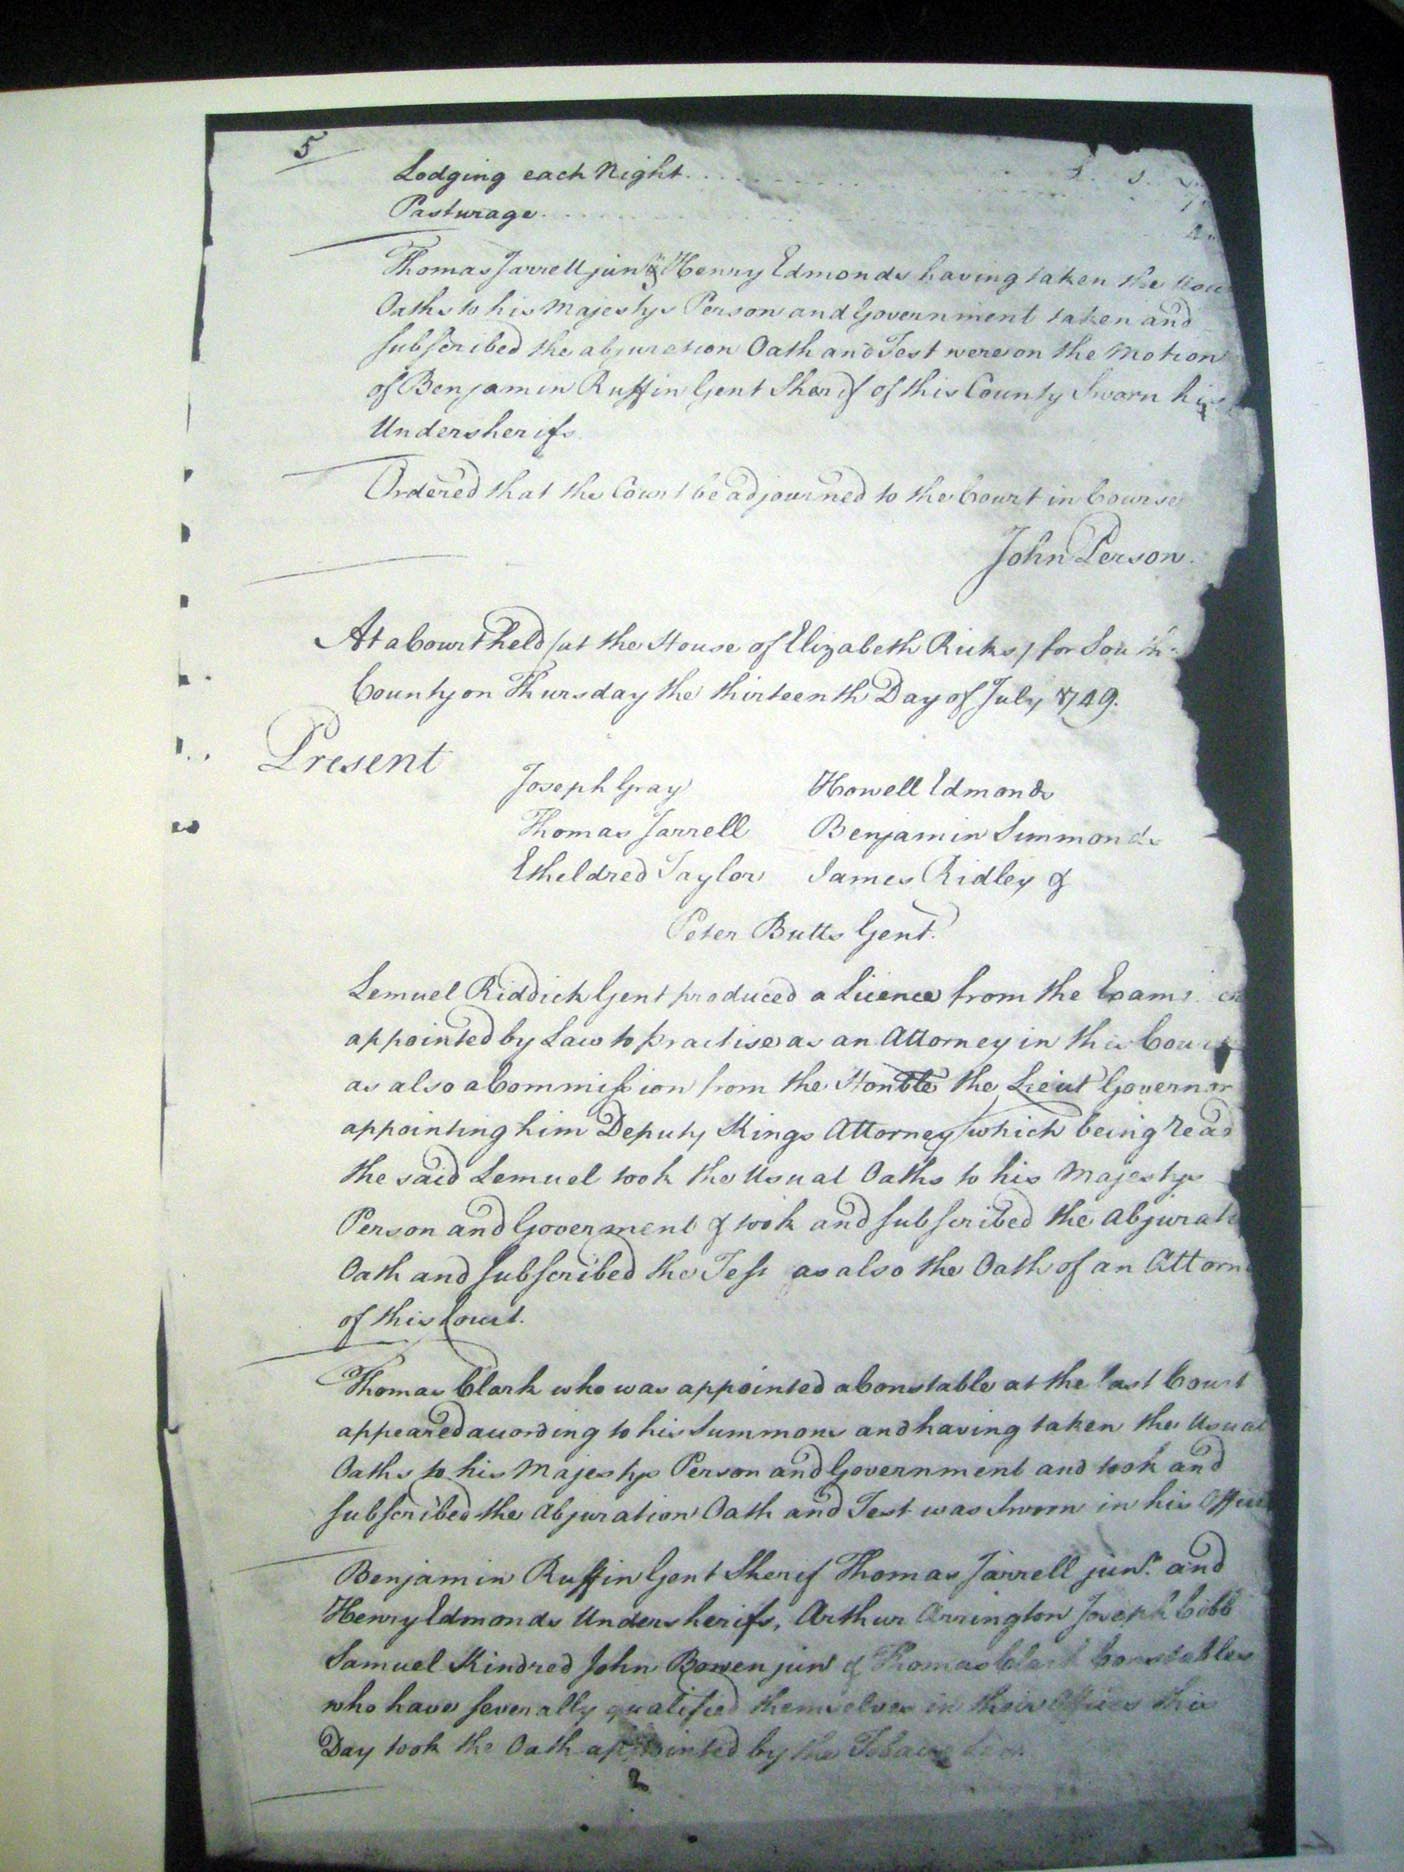 5
Lodging each Night
Pasturage
Thomas Jarrell junr & Henry Edmonds having taken the
Oaths to his Majestys Person and Government taken and
subscribed the abjuration Oath and Test were on the Motion
of Benjamin Ruffin Gent Sherif of this County Sworn his
Undersherifs
Ordered that the Court be adjourned to the Court in Course
John Person.
At a Court held (at the House of Elizabeth Ricks) for South
County on Thursday the thirteenth Day of July 1749.
Present
Joseph Gray Howell Edmonds
Thomas Jarrell Benjamin Simmonds
Etheldred Taylor James Ridley &
Peter Butts Gent.
Lemuel Riddick Gent produced a Licence from the
appointed by Law to practise as an Attorney in this
as also a Commission from the Honble the Lieut Governor
appointing him Deputy Kings Attorney which being read
the said Lemuel took the Usual Oaths to his Majestys
Person and Goverment & took and subscribed the Abjurati
Oath and subscribed the Test as also the Oath of an Attorn
of this Court.
Thomas Clark who was appointed a Constable at the last Court
appeared according to his Summons and having taken the Usual
Oaths to his Majestys Person and Government and took and
subscribed the Abjuration Oath and Test was Sworn in his Office
Benjamin Ruffin Gent Sherif Thomas Jarrell junr. and
Henry Edmonds Undersherifs, Arthur Arrington Joseph Cobb
Samuel Kindred John Bowen junr & Thomas Clark Constables
who have severally qualified themselves in their Offices this
Day took the Oath appointed by the